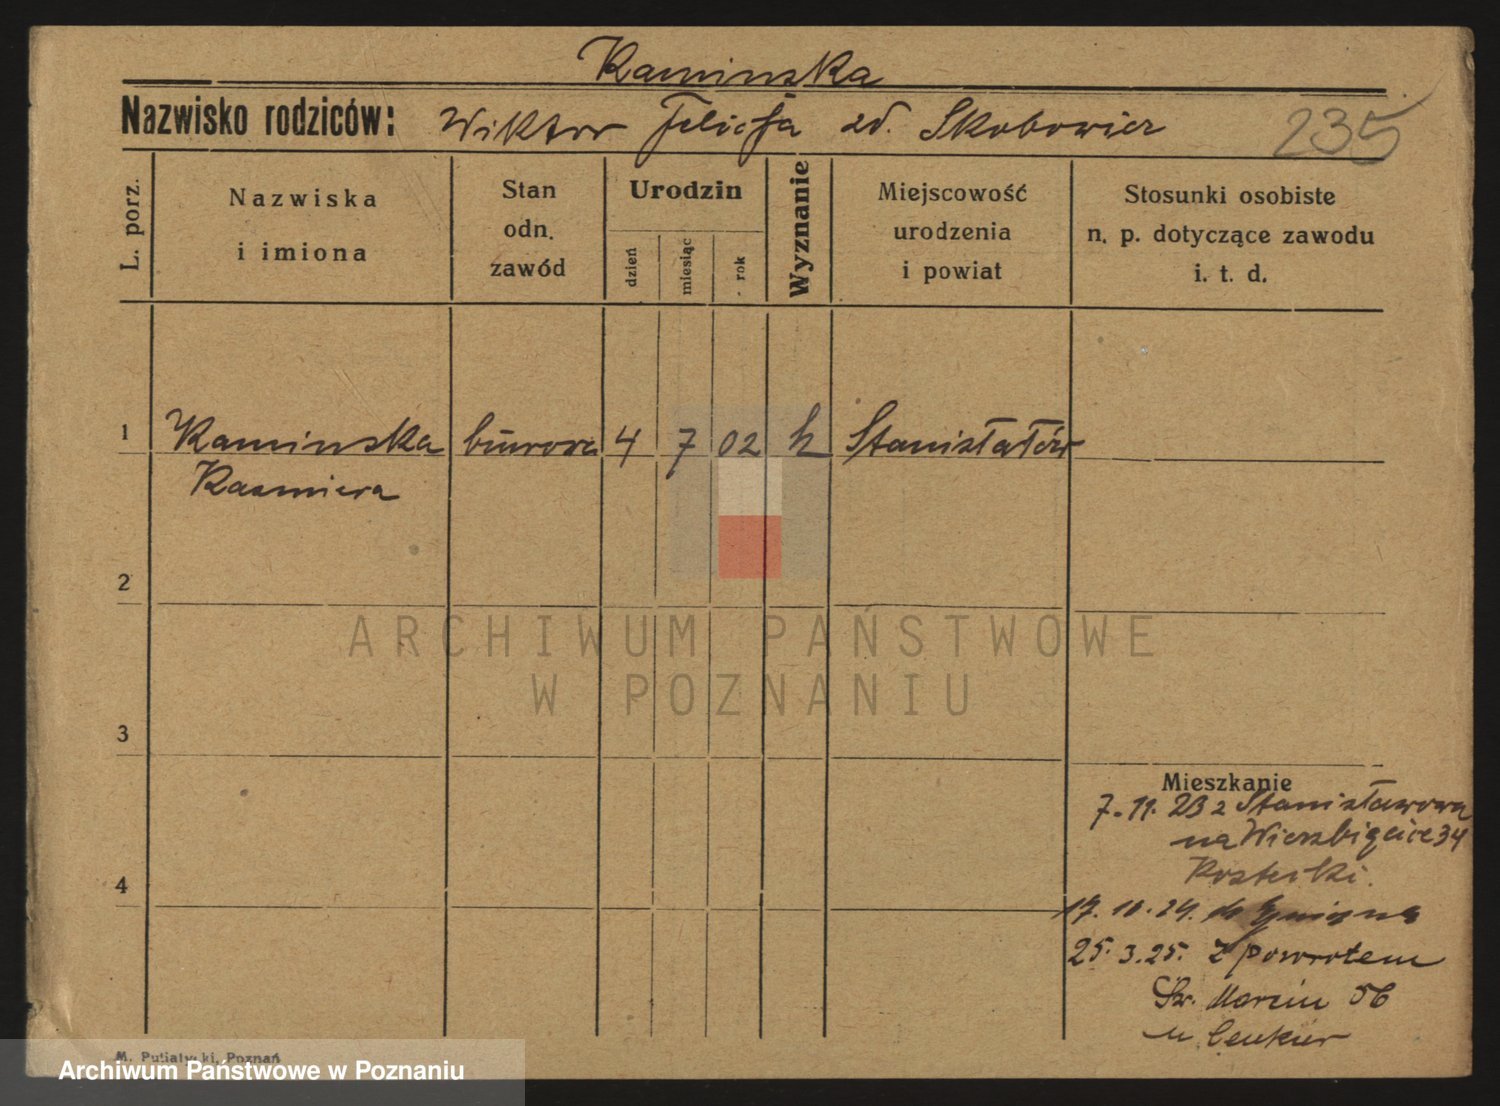 Kaminska
Nazwisko rodziców: Wiktor Felicja zd. Skobowicz
235
L. porz.
Nazwiska
i imiona
Stan
odn.
zawód
Urodzin
dzień
miesiąc
rok
Wyznanie
Miejscowość
urodzenia
i powiat
Stosunki osobiste
n. p. dotyczące zawodu
i. t. d.
1 Kaminska biurowa 4 7 02 k Stanisłatów
Kazmiera
2
3
4
ARCHIWUM PAŃSTWOWE
W POZNANIU
Mieszkanie
7.11.23 z Stanisławowa
na Wierzbięcice 34
17.10.24. do Gniezna
25.3.25. z powrotem
Św. Marcin 56
u
M. Putiatycki, Poznań
Archiwum Państwowe w Poznaniu